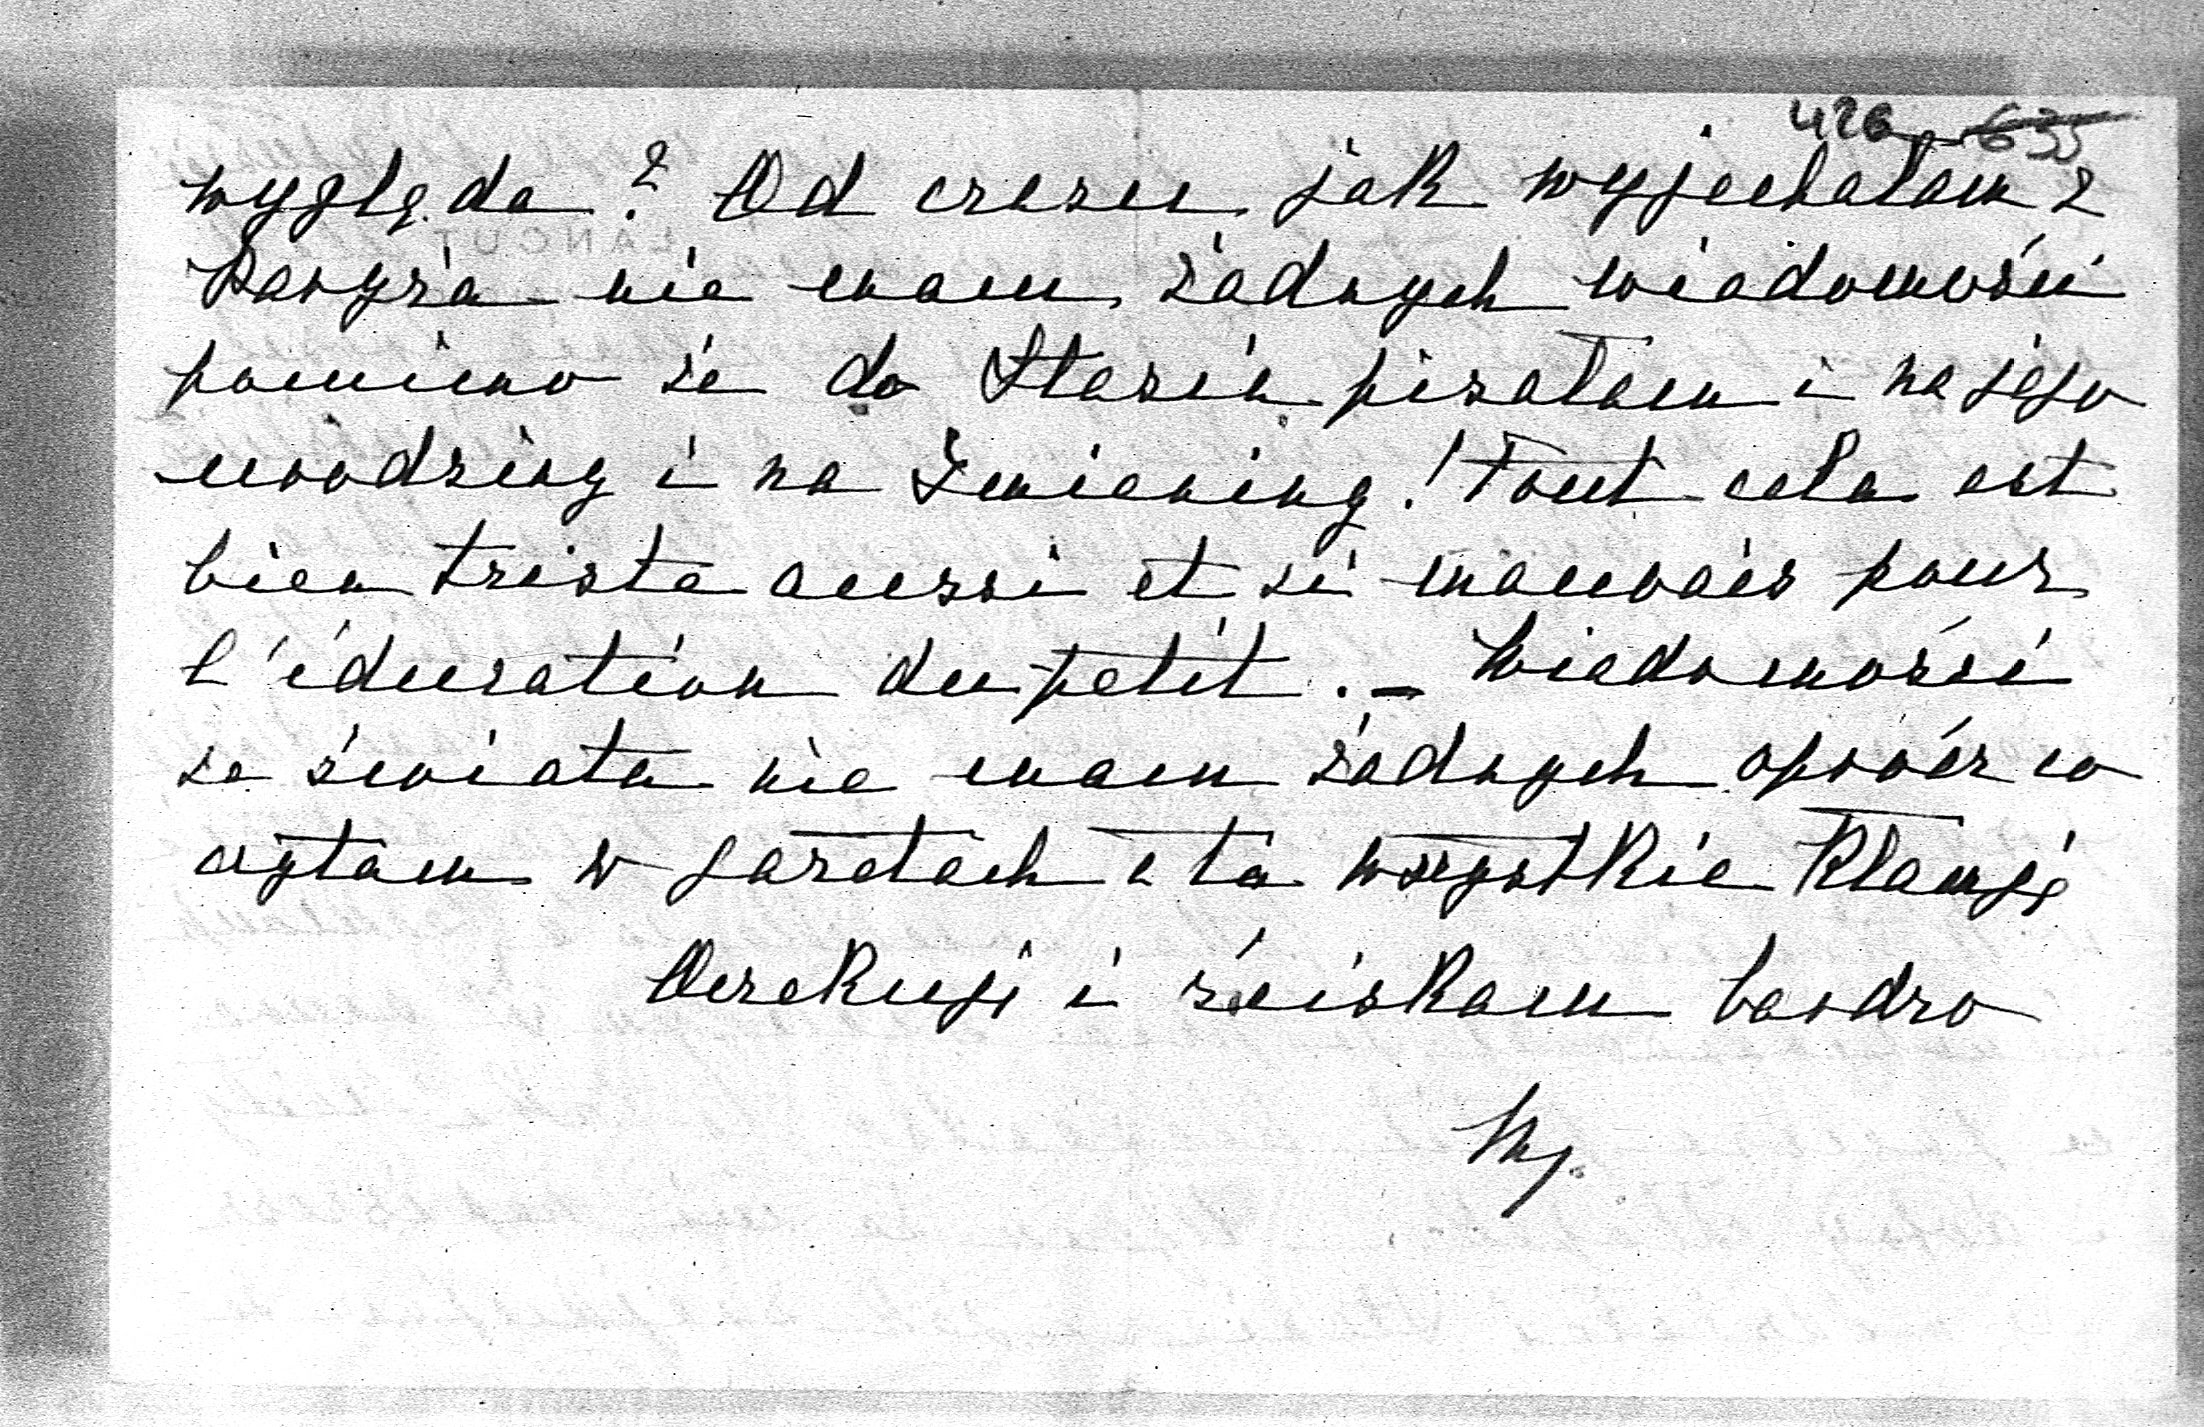 426 635
wygląda? Od czasu jak wyjechałam z
Paryża nie mam żadnych wiadomości
pomimo że do Stasia pisałam i na jego
urodziny i na Imieniny! Tout cela est
bien triste aussi et si mauvais pour
l'éducation du petit. – Wiadomości
ze świata nie mam żadnych oprócz co
czytam w gazetach a te wszystkie kłamją
Oczekuję i ściskam bardzo
ŁANCUT